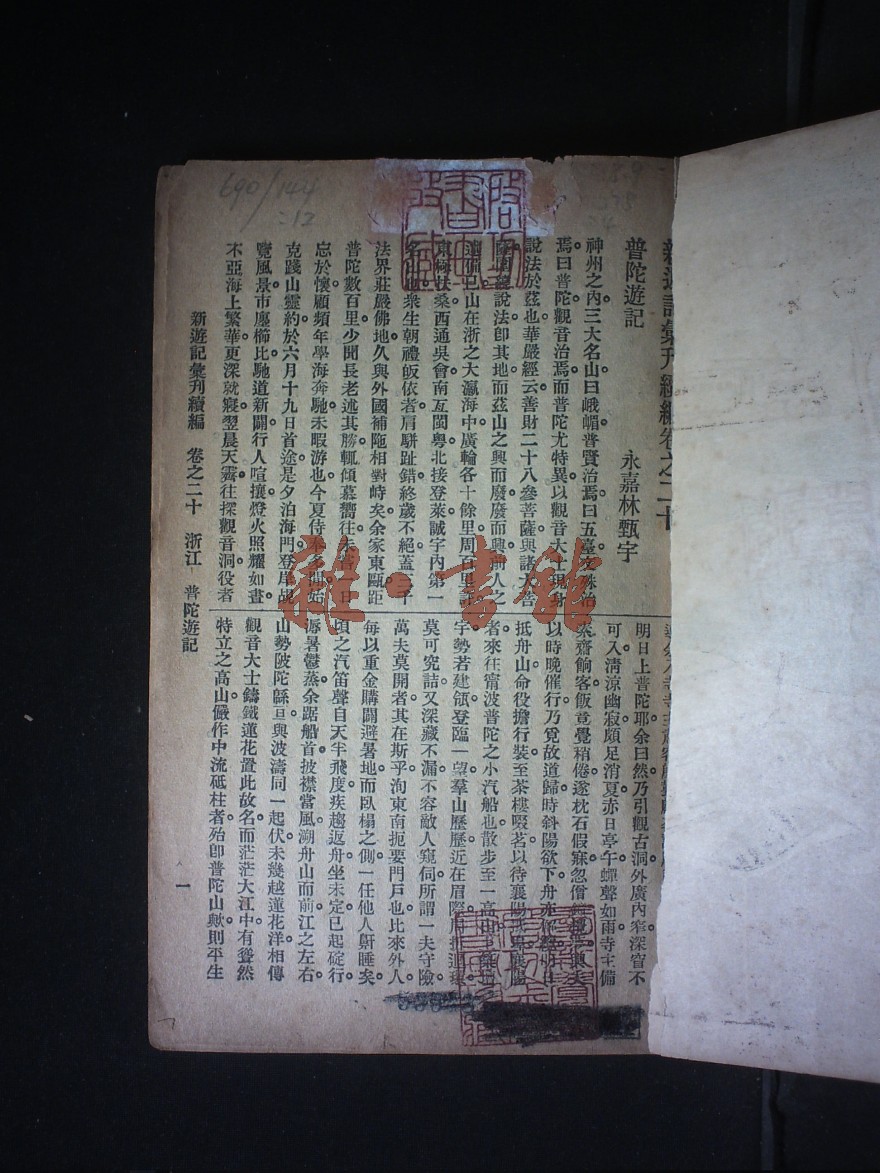 新遊記彙刊續編卷之二十
普陀遊記
永嘉林甄宇
神州之內三大名山曰峨嵋普賢治焉曰五臺文殊治
焉曰普陀觀音治焉而普陀尤特異以觀音大士現身
說法於茲也華嚴經云善財二十八叅菩薩與諸大菩
說法卽其地而茲山之興而廢廢而興前人之
山在浙之大瀛海中廣輪各十餘里周百里
扶桑西通吳會南亙閩粵北接登萊誠宇內第一
名山也衆生朝禮皈依者肩駢趾錯終歲不絕蓋三千
法界莊嚴佛地久與外國補陁相對峙矣余家東甌距
普陀數百里少聞長老述其勝輒傾慕嚮往未嘗一日
忘於懷顧頻年學海奔馳未暇游也今夏侍奉多閒始
克踐山靈約於六月十九日首途是夕泊海門登岸
覽風景市廛櫛比馳道新闢行人喧攘燈火照耀如晝
不亞海上繁華更深就寢翌晨天霽往探觀音洞役者
明日上普陀耶余曰然乃引觀古洞外廣內窄深窅不
可入淸涼幽寂頗足消夏亦日亭午蟬聲如雨寺主備
齋餉客飯竟覺稍倦遂枕石假寐忽僧
以時晚催行乃覓故道歸時斜陽欲下舟亦
抵舟山命役擔行裝至茶樓啜茗以待襄陽
者來往甯波普陀之小汽船也散步至一高
宇勢若建瓴登臨一望羣山歷歷近在眉際
莫可究詰又深藏不漏不容敵人窺伺所謂一夫守險
萬夫莫開者其在斯乎洵東南扼要門戶也比來外人
每以重金購闢避暑地而臥榻之側一任他人鼾睡矣
頃之汽笛聲自天半飛度疾趨返舟坐未定已起碇行
溽暑鬱蒸余踞船首披襟當風溯舟山而前江之左右
山勢陂陀緜亘與波濤同一起伏未幾越蓮花洋相傳
觀音大士鑄鐵蓮花置此故名而茫茫大江中有聳然
特立之高山儼作中流砥柱者殆卽普陀山歟則平生
新遊記彙刊續編 卷之二十 浙江 普陀遊記
一
690/144
:12
雜·書館